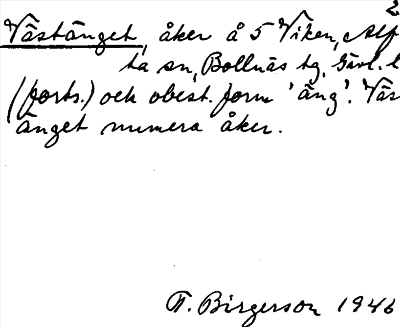 2
Västänget, åker å 5 Viken, Alf
ta sn, Bollnäs tg, Gävl. l
(forts.) och obest. form 'äng'. Väs
änget numera åker.
T. Birgerson 1946